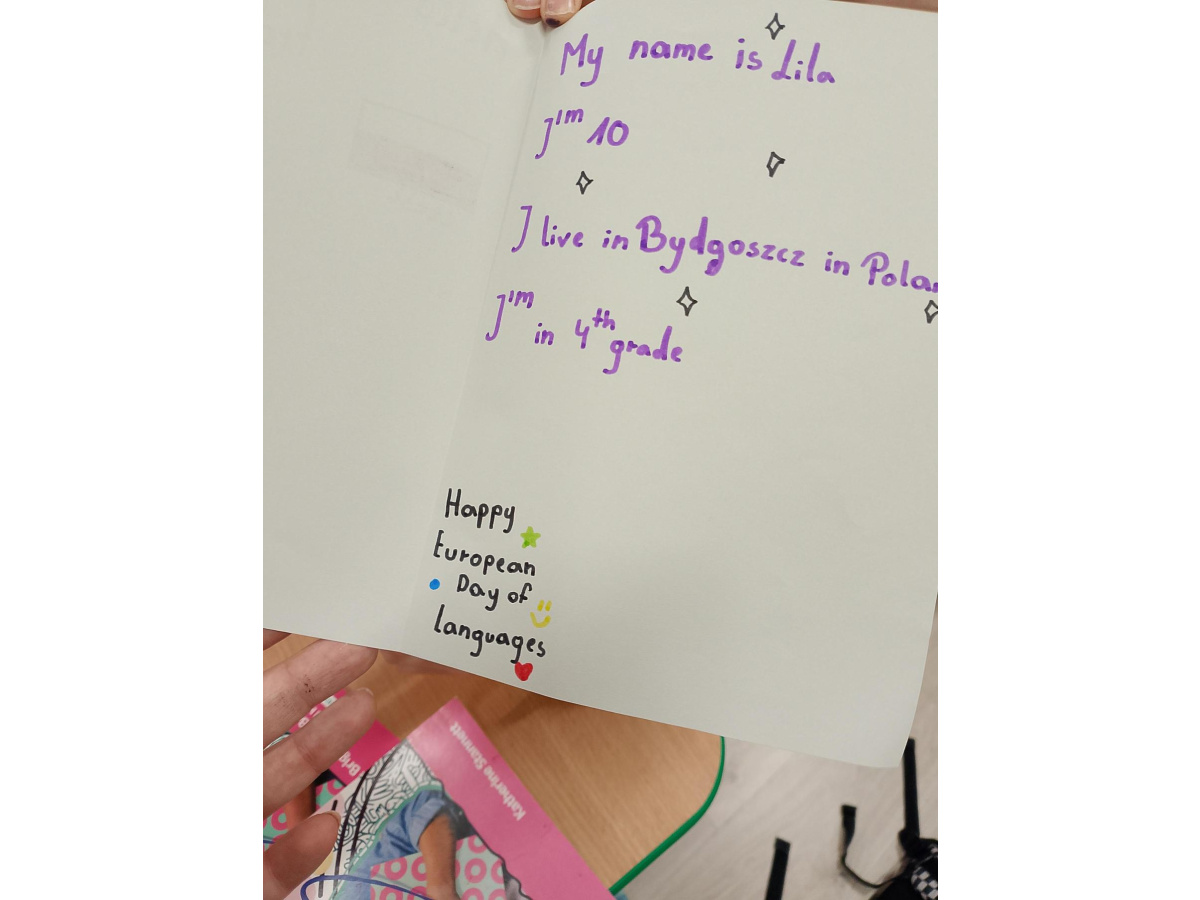 My name is Lila
I'm 10
I live in Bydgoszcz in Polan
I'm in 4th grade
Happy
European
Day of
languages
Katherine Stannett
Brig